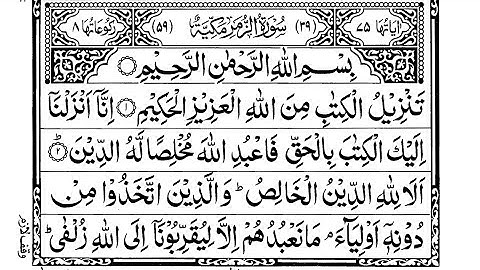 اٰیَاتُهَا ۷۵ (۳۹) سُوْرَةُ الزُّمَرِ مَكِّیَّةٌ (۵۹) رُكُوْعَاتُهَا ۸
بِسْمِ اللهِ الرَّحْمٰنِ الرَّحِیْمِ
تَنْزِیْلُ الْكِتٰبِ مِنَ اللهِ الْعَزِیْزِ الْحَكِیْمِ ۝۱ اِنَّاۤ اَنْزَلْنَاۤ
اِلَیْكَ الْكِتٰبَ بِالْحَقِّ فَاعْبُدِ اللهَ مُخْلِصًا لَّهُ الدِّیْنَ ؕ۝۲
اَلَا لِلّٰهِ الدِّیْنُ الْخَالِصُ ؕ وَالَّذِیْنَ اتَّخَذُوْا مِنْ
دُوْنِهٖۤ اَوْلِیَآءَ ۘ مَا نَعْبُدُهُمْ اِلَّا لِیُقَرِّبُوْنَاۤ اِلَی اللهِ زُلْفٰی ؕ
وقف لازم